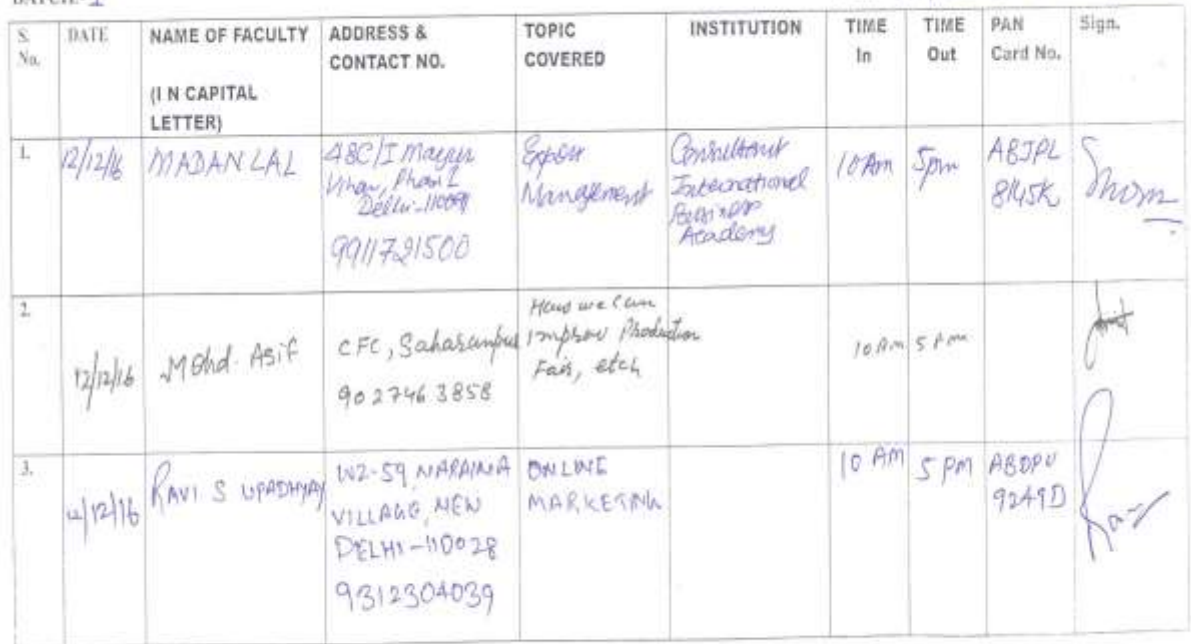 BATCH: 1
S. No. DATE NAME OF FACULTY (I N CAPITAL LETTER) ADDRESS & CONTACT NO. TOPIC COVERED INSTITUTION TIME In TIME Out PAN Card No. Sign.
1. 12/12/16 MADAN LAL
48C/I Mayur
Vihar, Phase I
Delhi-110091
9911721500
Export
Management
Consultant
International
Business
Academy
10 Am 5pm
ABJPL
8145K
2. 12/12/16 Mohd. Asif
CFC, Saharanpur
902746 3858
How we Can
improw Production
Fair, etch
10 Am 5 Pm
3. 12/12/16 RAVI S UPADHYAY
WZ-59, NARAINA
VILLAGE, NEW
DELHI-110028
9312304039
ONLINE
MARKETING
10 AM 5 PM
ABDPU
9249D